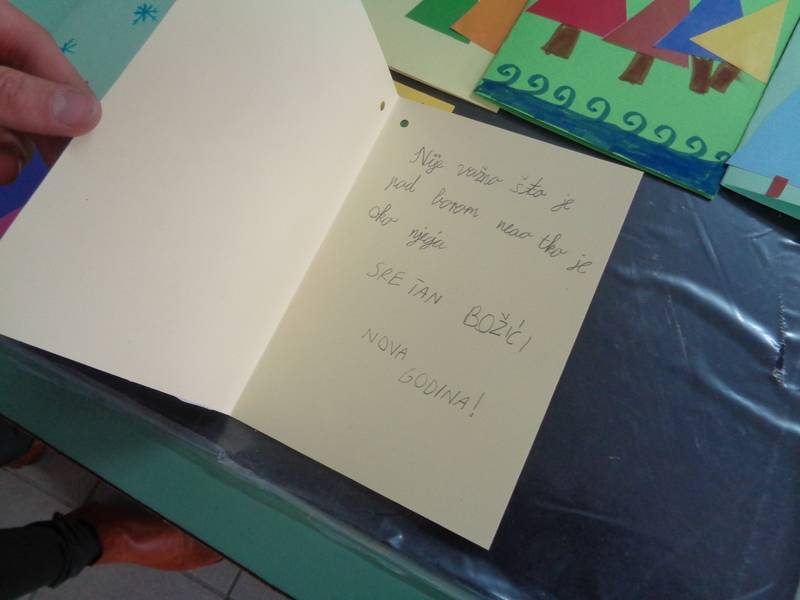 Nije važno što je
pod borom neao tko je
oko njega
SRETAN BOŽIĆ I
NOVA
GODINA!